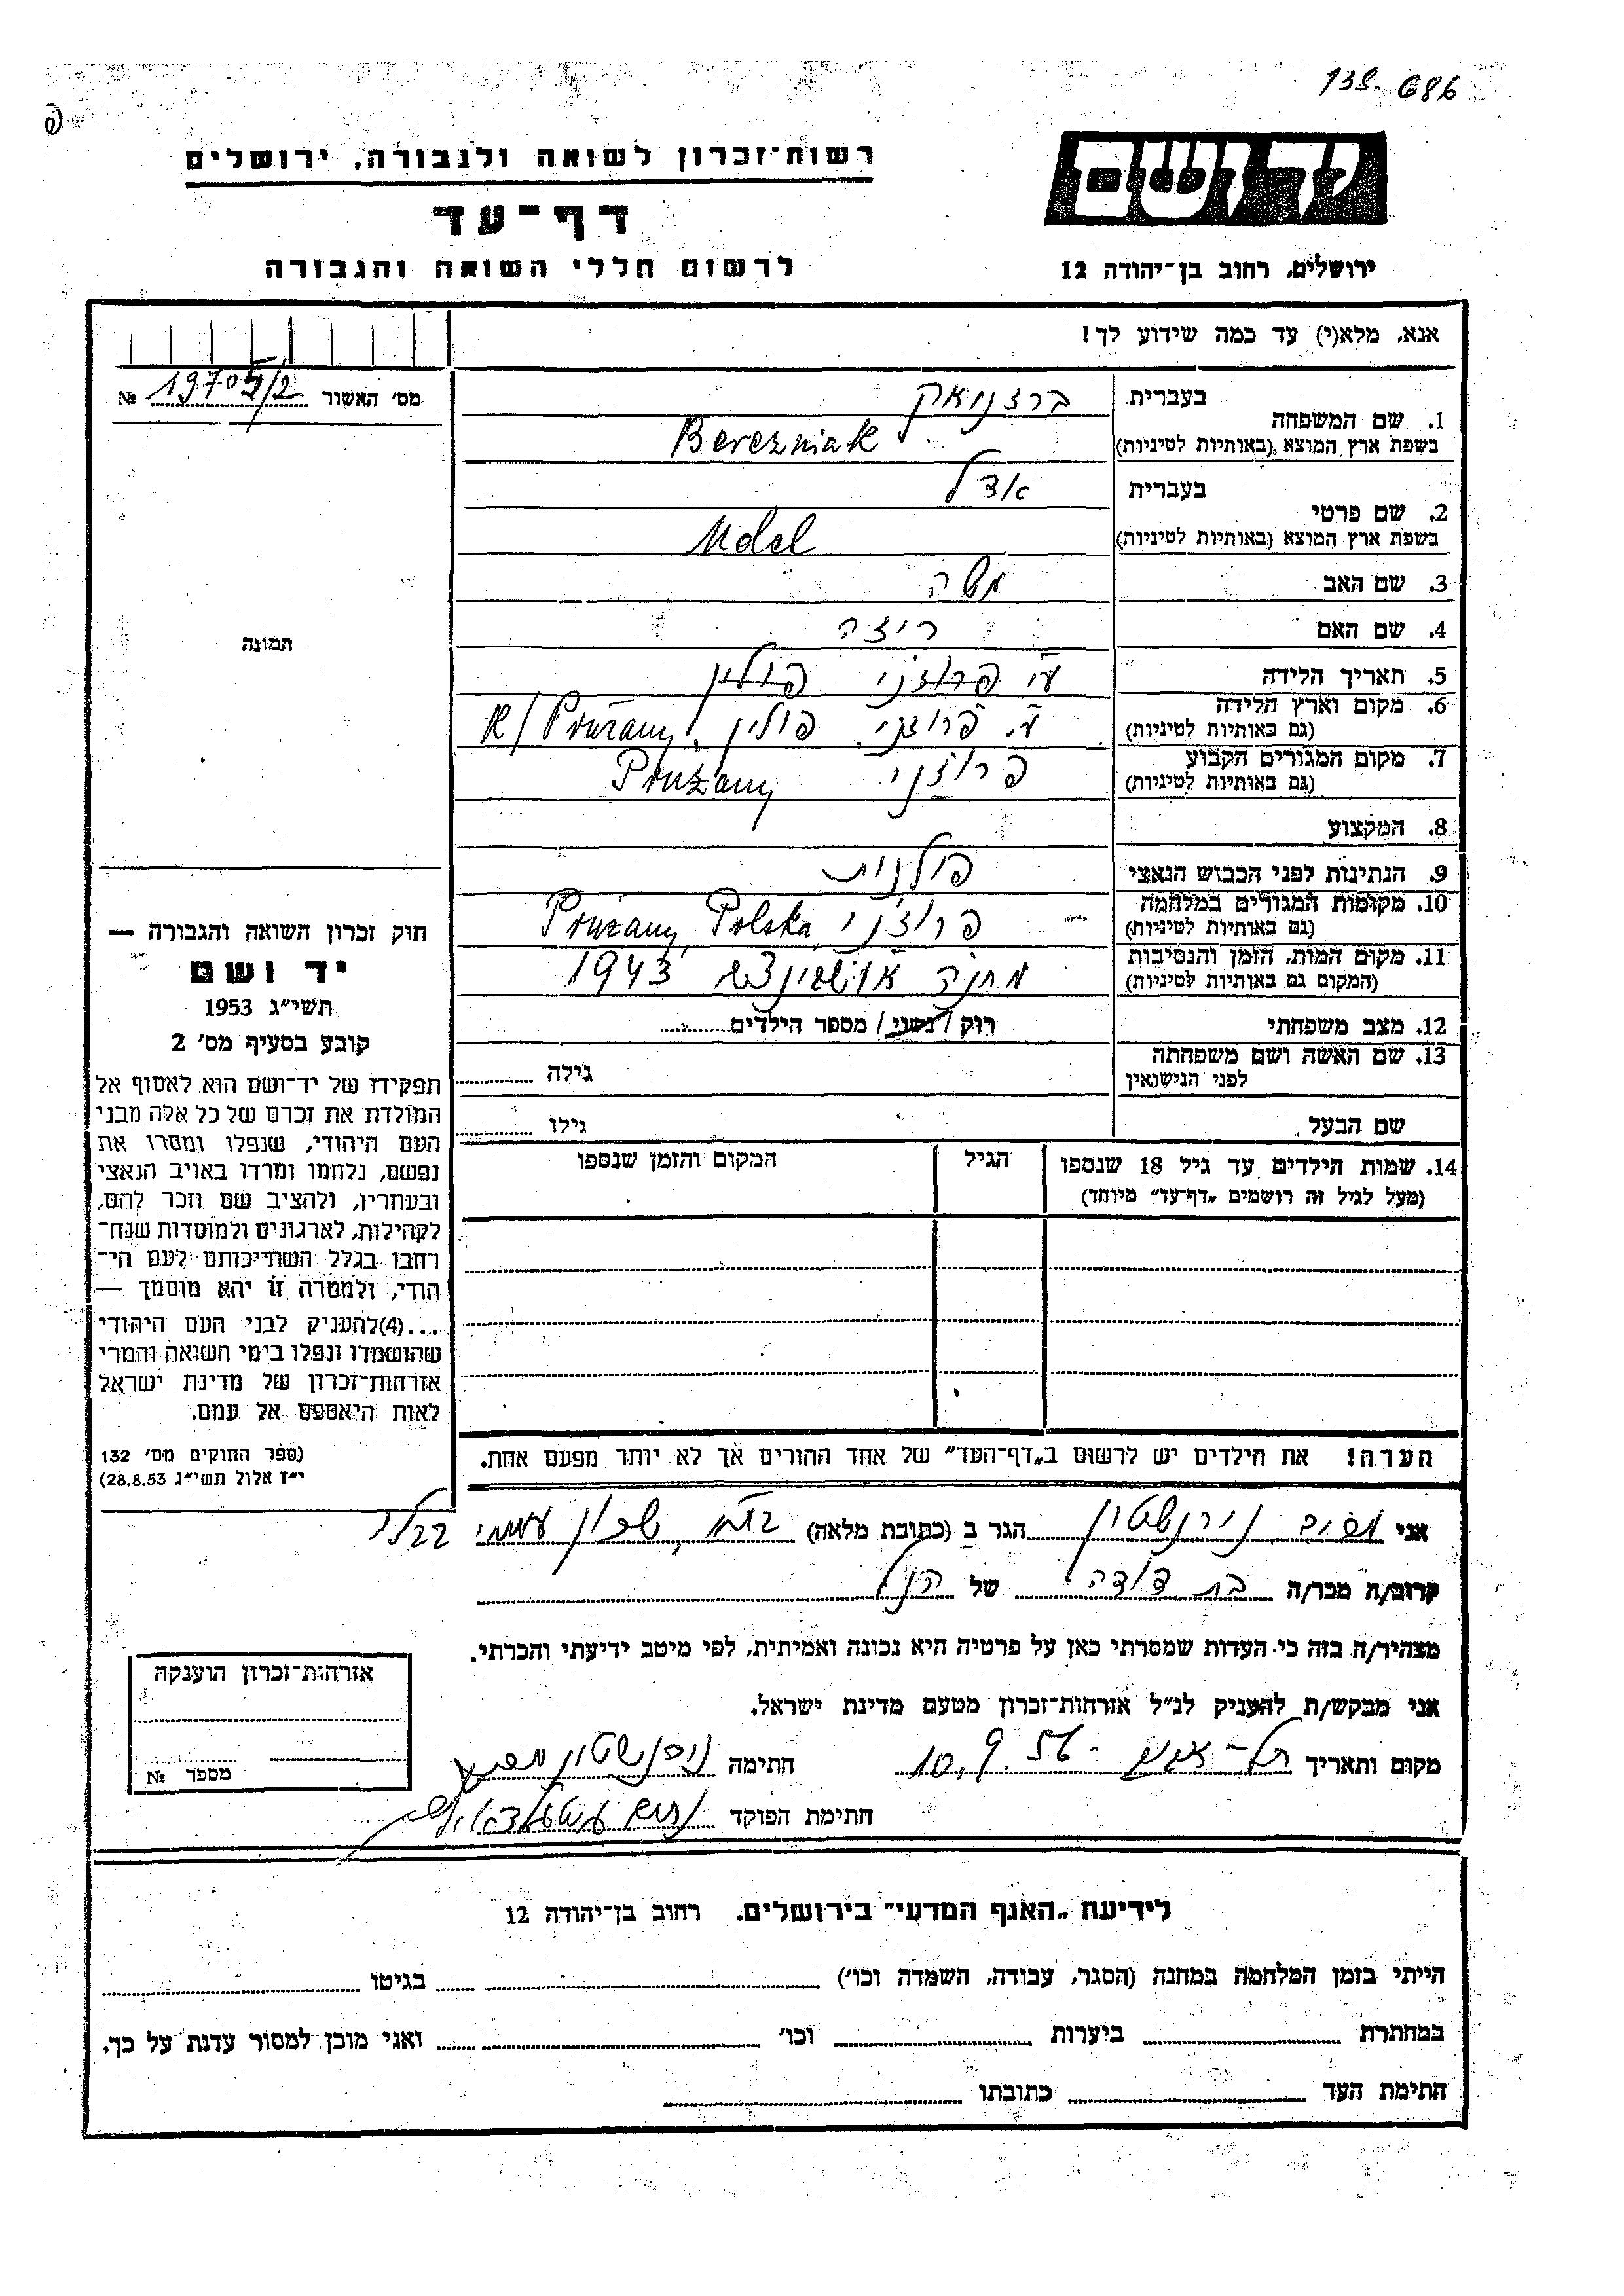 138. 686
יד ושם
רשות־זכרון לשואה ולגבורה, ירושלים
דף־עד
לרשום חללי השואה והגבורה
ירושלים, רחוב בן־יהודה 12
אנא, מלא(י) עד כמה שידוע לך!
מס׳ האשור 19705/2 №
תמונה
1. שם המשפחה בעברית ברזניאק
בשפת ארץ המוצא (באותיות לטיניות) Berezniak
2. שם פרטי בעברית אדל
בשפת ארץ המוצא (באותיות לטיניות) Udel
3. שם האב משה
4. שם האם ריזה
5. תאריך הלידה ע״י פרוז׳ני פולין
6. מקום וארץ הלידה (גם באותיות לטיניות) ע״י פרוז׳ני פולין K/Pružany
7. מקום המגורים הקבוע (גם באותיות לטיניות) פרוז׳ני Pružany
8. המקצוע
9. הנתינות לפני הכבוש הנאצי פולנית
10. מקומות המגורים במלחמה (גם באותיות לטיניות) פרוז׳ני Pružany, Polska
11. מקום המות, הזמן והנסיבות (המקום גם באותיות לטיניות) מחנה אושוינצ׳ים 1943
12. מצב משפחתי רווק / נשוי / מספר הילדים
13. שם האשה ושם משפחתה לפני הנישואין גילה
שם הבעל גילו
14. שמות הילדים עד גיל 18 שנספו הגיל המקום והזמן שנספו
(מעל לגיל זה רושמים „דף־עד״ מיוחד)
חוק זכרון השואה והגבורה —
יד ושם
תשי״ג 1953
קובע בסעיף מס׳ 2
תפקידו של יד־ושם הוא לאסוף אל
המולדת את זכרם של כל אלה מבני
העם היהודי, שנפלו ומסרו את
נפשם, נלחמו ומרדו באויב הנאצי
ובעוזריו, ולהציב שם וזכר להם,
לקהילות, לארגונים ולמוסדות שנח־
רחבו בגלל השתייכותם לעם הי־
הודי, ולמטרה זו יהא מוסמך —
...(4)להעניק לבני העם היהודי
שהושמדו ונפלו בימי השואה והמרי
אזרחות־זכרון של מדינת ישראל
לאות היאספם אל עמם.
(ספר החוקים מס׳ 132
י״ז אלול תשי״ג 28.8.53)
הערה! את הילדים יש לרשום ב„דף־העד״ של אחד ההורים אך לא יותר מפעם אחת.
אני נירנשטין הגר ב (כתובת מלאה) שכון עממי
קרוב/ה מכר/ה בת דודה של הנ״ל
מצהיר/ה בזה כי העדות שמסרתי כאן על פרטיה היא נכונה ואמיתית, לפי מיטב ידיעתי והכרתי.
אני מבקש/ת להעניק לנ״ל אזרחות־זכרון מטעם מדינת ישראל.
מקום ותאריך 10.9.56 חתימה נירנשטין
חתימת הפוקד
אזרחות־זכרון הוענקה
מספר №
לידיעת „האגף המדעי״ בירושלים, רחוב בן־יהודה 12
הייתי בזמן המלחמה במחנה (הסגר, עבודה, השמדה וכו׳) בגיטו
במחתרת ביערות וכו׳ ואני מוכן למסור עדות על כך.
חתימת העד כתובתו